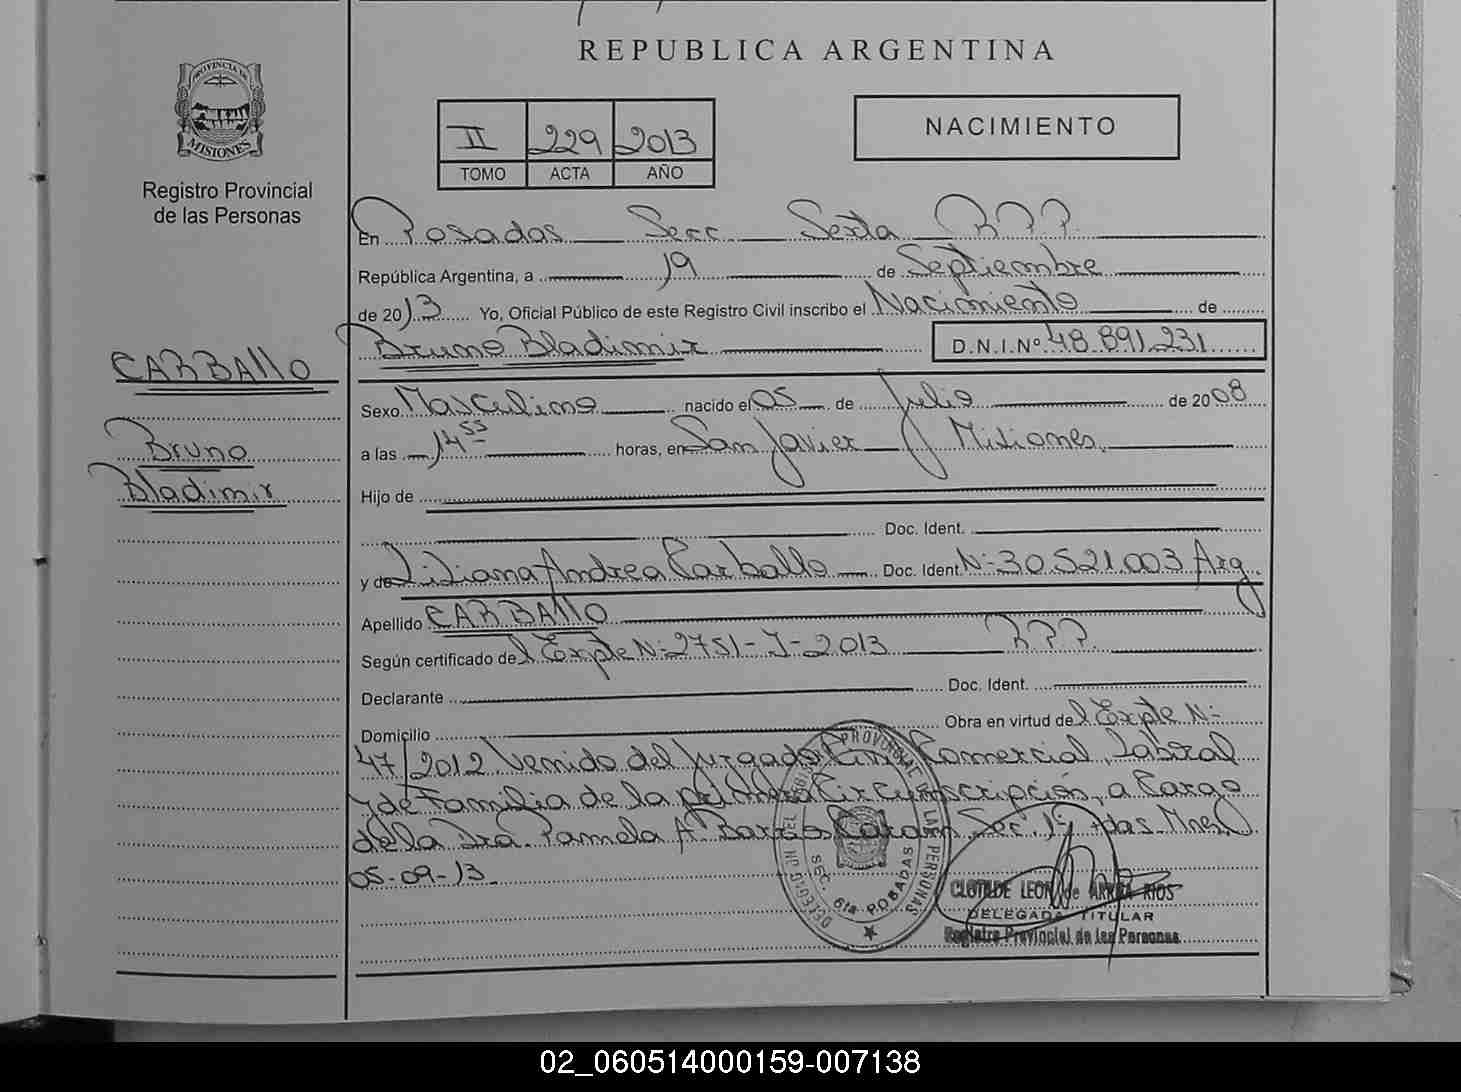 REPUBLICA ARGENTINA
PROVINCIA DE
MISIONES
Registro Provincial
de las Personas
II 229 2013
TOMO ACTA AÑO
NACIMIENTO
En Posadas Secc Sexta R.P.P.
República Argentina, a 19 de Septiembre
de 2013 Yo, Oficial Público de este Registro Civil inscribo el Nacimiento de
Bruno Bladimir D.N.I.Nº 48.891.231
CARBALLO
Bruno
Bladimir
Sexo Masculino nacido el 05 de Julio de 2008
a las 14 53 horas, en San Javier Misiones.
Hijo de
Doc. Ident.
y de Liliana Andrea Carballo Doc. Ident. Nº 30.521.003 Arg.
Apellido CARBALLO
Según certificado del Expte Nº 2751-J-2013 R.P.P.
Declarante Doc. Ident.
Domicilio Obra en virtud del Expte Nº
47/2012 Venido del Juzgado Civil Comercial, Laboral
y de Familia de la primera Circunscripción, a Cargo
de la Dra. Pamela A. Barrios Caram Sec. 1ª Pdas. Mnes.
05-09-13
SEC. 6ta POSADAS
CLOTILDE LEON de ARRUA RIOS
DELEGADA TITULAR
Registro Provincial de las Personas
02_060514000159-007138